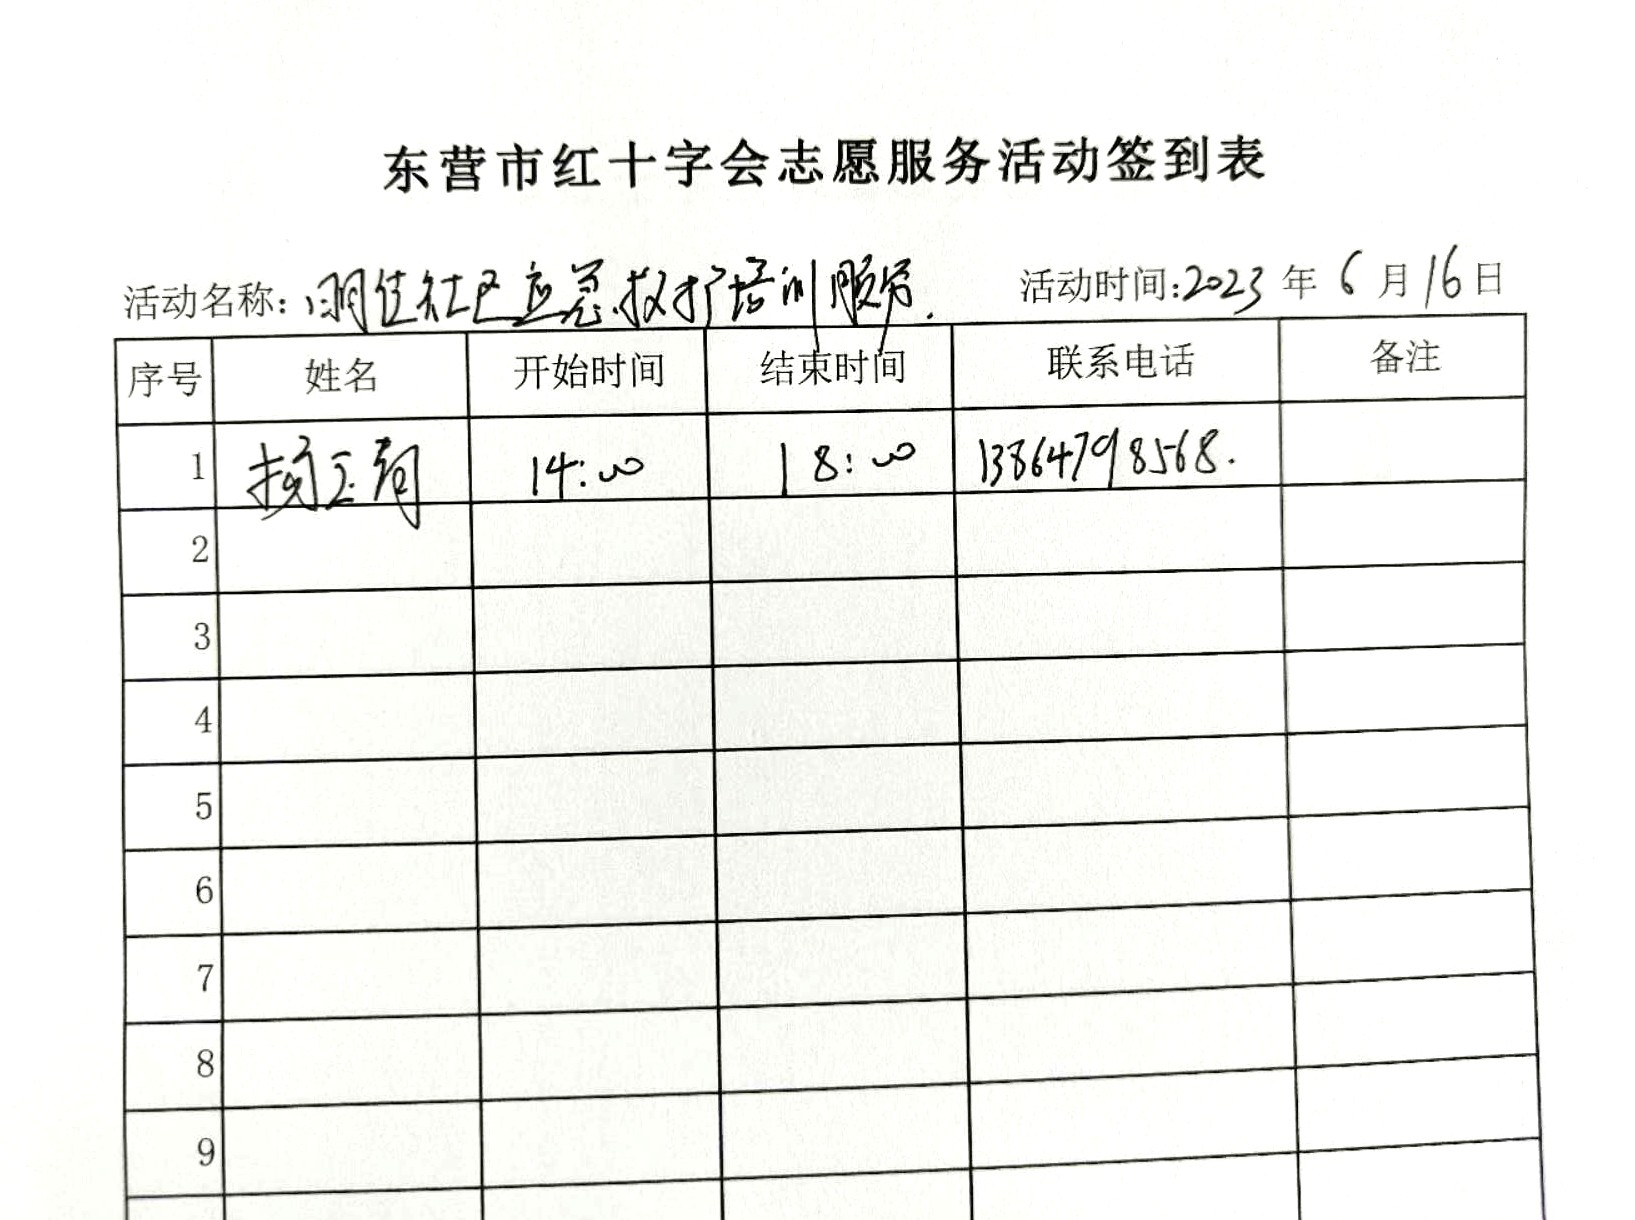 东营市红十字会志愿服务活动签到表
活动名称: 社区应急救护培训服务. 活动时间:2023年6月16日
序号 姓名 开始时间 结束时间 联系电话 备注
1 14:00 18:00 13864798568.
2
3
4
5
6
7
8
9